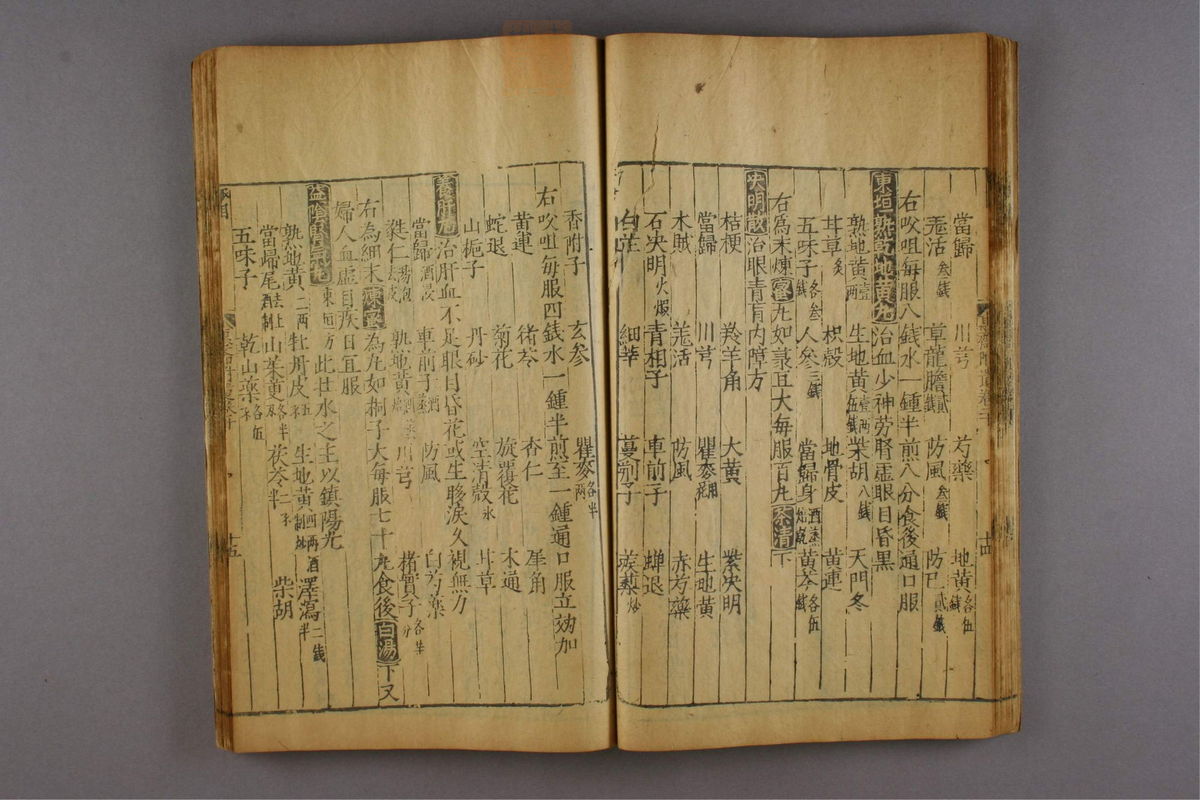 當歸 川芎 芍藥 地黃各伍錢
羗活叁錢 草龍膽貳錢 防風叁錢 防巳貳錢
右㕮咀每服八錢水一鍾半煎八分食後通口服
東垣熟乾地黃丸治血少神劳腎虚眼目昏黒
熟地黃壹兩 生地黃壹兩伍錢 柴胡八錢 天門冬
甘草炙 枳殼 地骨皮 黃連
五味子各叁錢 人參三錢 當歸身酒蒸焙乾 黃芩各伍錢
右爲末煉蜜丸如菉豆大每服百丸茶清下
决明散治眼青盲内障方
桔梗 羚羊角 大黃 紫决明
當歸 川芎 瞿麥 生地黃
木賊 羗活 防風 赤芍藥
石决明火煅 青相子 車前子 蟬退
白芷 細莘 蔓荆子 蒺藜炒
香附子 玄參 瞿麥各半兩
右㕮咀每服四錢水一鍾半煎至一鍾通口服立効加
黃連 猪苓 杏仁 犀角
蛇退 菊花 旋覆花 木通
山梔子 丹砂 空清殼水 甘草
養肝丸治肝血不足眼目昏花或生眵淚久視無力
當歸酒浸 車前子酒蒸 防風 白芍藥
蕤仁湯泡去皮 熟地黃酒蒸 川芎 楮實子各半分
右為細末煉蜜為丸如桐子大每服七十丸食後白湯下又
婦人血虚目疾日宜服
益陰腎氣丸東垣方此壮水之主以鎮陽光
熟地黃二兩 牡丹皮五 生地黃四兩酒制炒 澤瀉二錢半
當歸尾去土酒制 山茱萸各半 茯苓二半 柴胡
五味子 乾山藥各伍
十四
十五